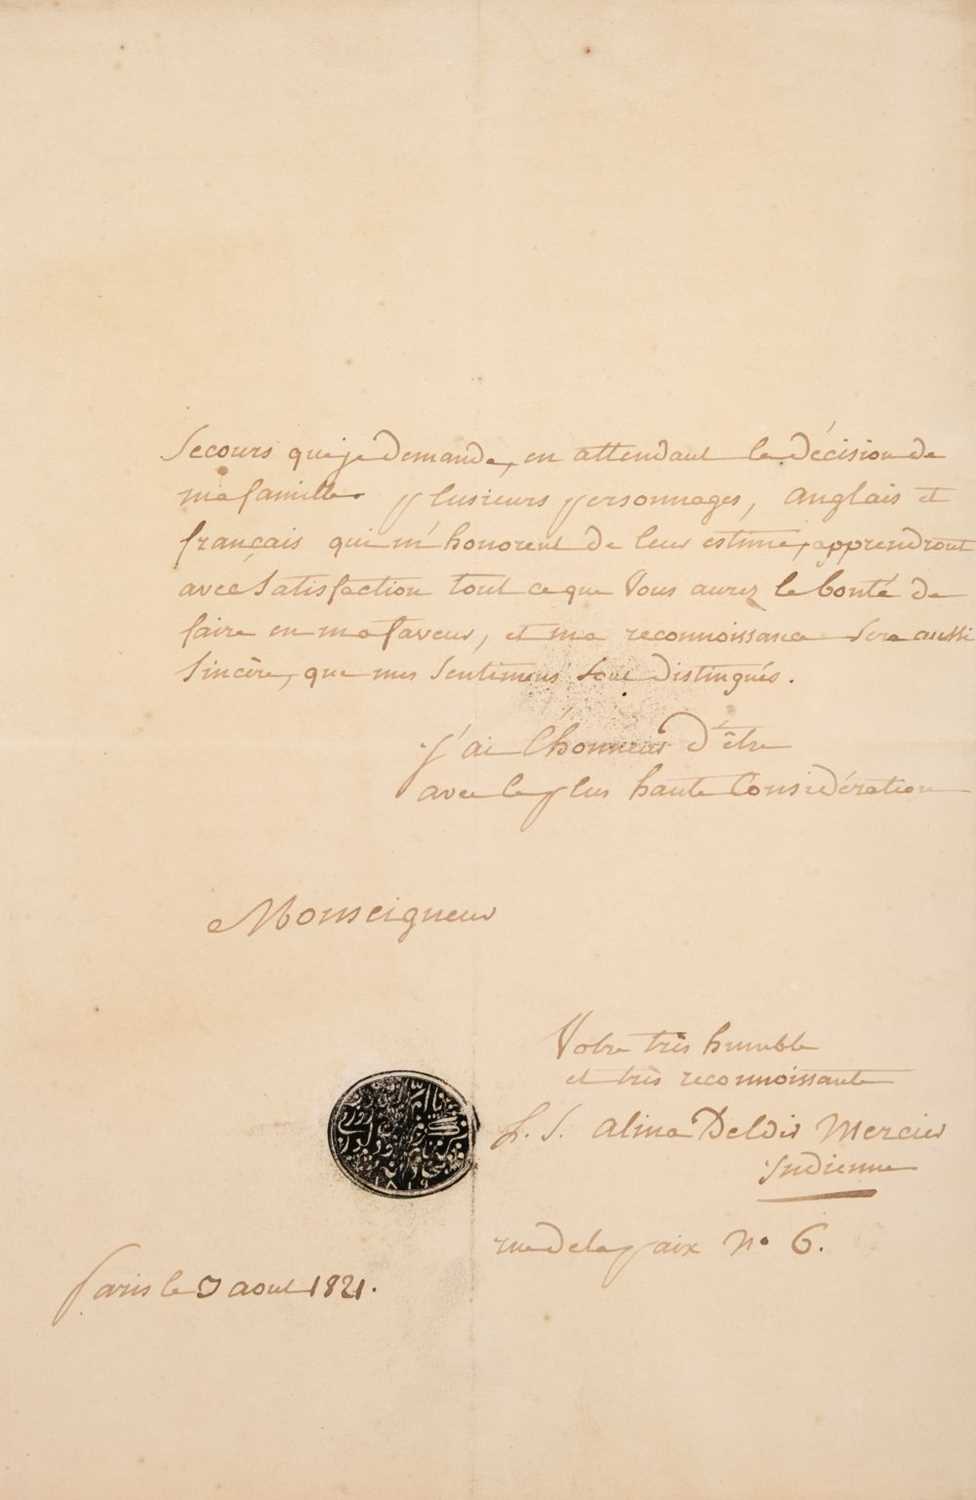 Secours que je demande, en attendant la décision de
ma famille. plusieurs personnages, anglais et
français qui m'honorent de leur estime, apprendront
avec Satisfaction tout ce que Vous aurez la bonté de
faire en ma faveur, et ma reconnoissance Sera aussi
Sincère, que mes Sentimens Sont Distingués.
j'ai l'honneur d'être
avec la plus haute Considération
Monseigneur
Votre très humble
et très reconnoissante
f. S. alina Deldir Mercier
Indienne
rue de la paix N° 6.
paris le aout 1821.